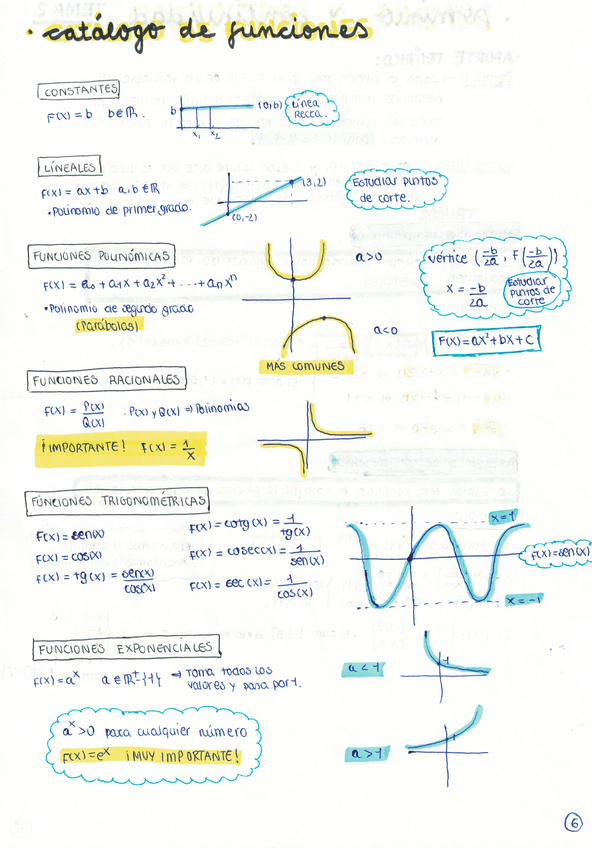 · catálogo de funciones
CONSTANTES
F(x) = b b∈ℝ.
b
x₁ x₂
(0,b)
Línea
RECTA.
LÍNEALES
F(x) = ax+b a,b∈ℝ
• Polinomio de primer grado.
(3,2)
(0,-2)
Estudiar puntos
de corte.
FUNCIONES POLINÓMICAS
F(x) = a₀ + a₁x + a₂x² + ... + aₙxⁿ
• Polinomio de segundo grado
(Parábolas)
a>0
a<0
MÁS COMUNES
vértice (-b/2a, F(-b/2a))
x = -b/2a
Estudiar
puntos de
corte
F(x) = ax²+bx+c
FUNCIONES RACIONALES
F(x) = P(x)/Q(x) . P(x) y Q(x) ⇒ Polinomios
¡IMPORTANTE! F(x) = 1/x
FUNCIONES TRIGONOMÉTRICAS
F(x) = sen(x)
F(x) = cos(x)
F(x) = tg(x) = sen(x)/cos(x)
F(x) = cotg(x) = 1/tg(x)
F(x) = cosec(x) = 1/sen(x)
F(x) = sec(x) = 1/cos(x)
x=1
F(x)=sen(x)
x=-1
FUNCIONES EXPONENCIALES
F(x) = aˣ a∈ℝ⁺-{1} ⇒ Toma todos los
valores y pasa por 1.
a<1
1
aˣ>0 para cualquier número
F(x)=eˣ ¡MUY IMPORTANTE!
a>1
1
6